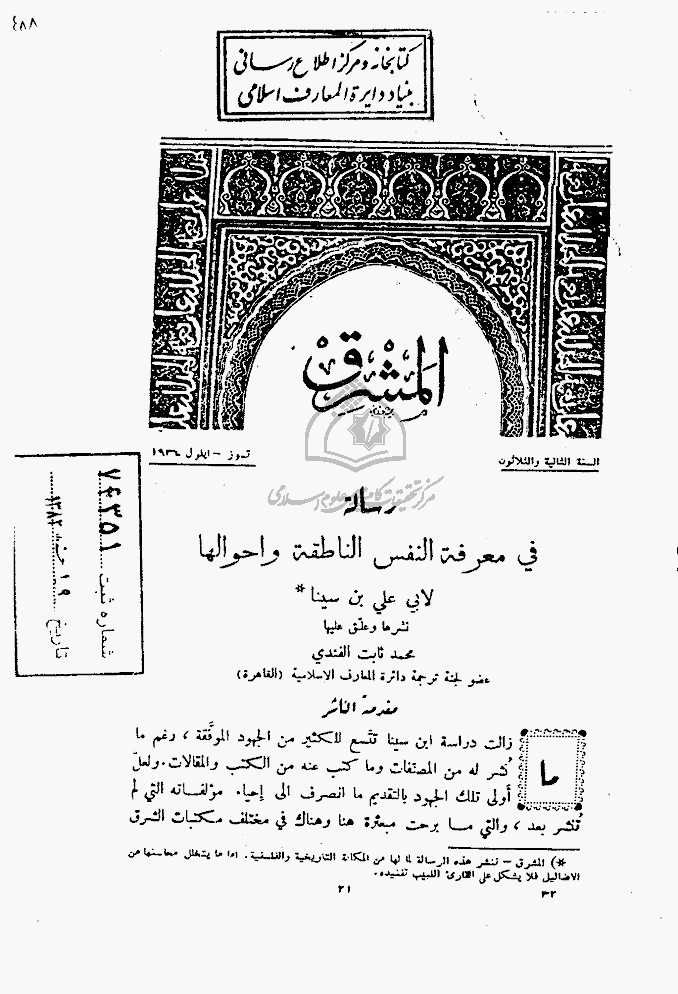 ٤٨٨
كتابخانه و مركز اطلاع رسانى
بنياد دايرة المعارف اسلامى
المشرق
السنة الثانية والثلاثون
تموز - ايلول ١٩٣٤
مركز تحقيقات كامپيوترى علوم اسلامى
رسالة
في معرفة النفس الناطقة واحوالها
لابي علي بن سينا*
نشرها وعلّق عليها
محمد ثابت الفندي
عضو لجنة ترجمة دائرة المعارف الاسلامية (القاهرة)
مقدمة الناشر
ما زالت دراسة ابن سينا تتَّسع للكثير من الجهود الموفَّقة ، رغم ما
نُشر له من المصنَّفات وما كتب عنه من الكتب والمقالات. ولعلّ
أولى تلك الجهود بالتقديم ما انصرف الى إحياء مؤلفاته التي لم
تُنشر بعد ، والتي مـا برحت مبعثرة هنا وهناك في مختلف مكتبات الشرق
*) المشرق – ننشر هذه الرسالة لما لها من المكانة التاريخية والفلسفية. اما ما يتخلل محاسنها من
الاضاليل فلا يشكل على القارئ اللبيب تفنيده.
٢١
٣٢
شماره ثبت ٧٤٣٥١
تاريخ